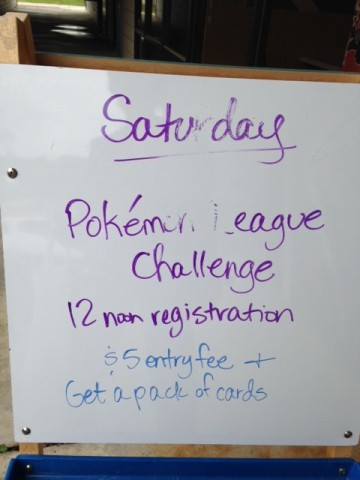 Saturday
Pokémon League
Challenge
12 noon registration
$5 entry fee +
Get a pack of cards